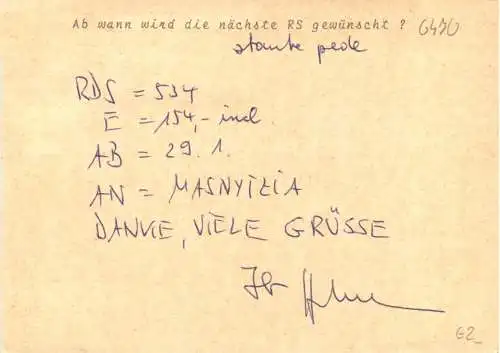 Ab wann wird die nächste RS gewünscht ? 6470
stante pede
RDS = 534
E = 154,- incl.
AB = 29. 1.
AN = MASNYIZIA
DANKE, VIELE GRÜSSE
Ihr
G2